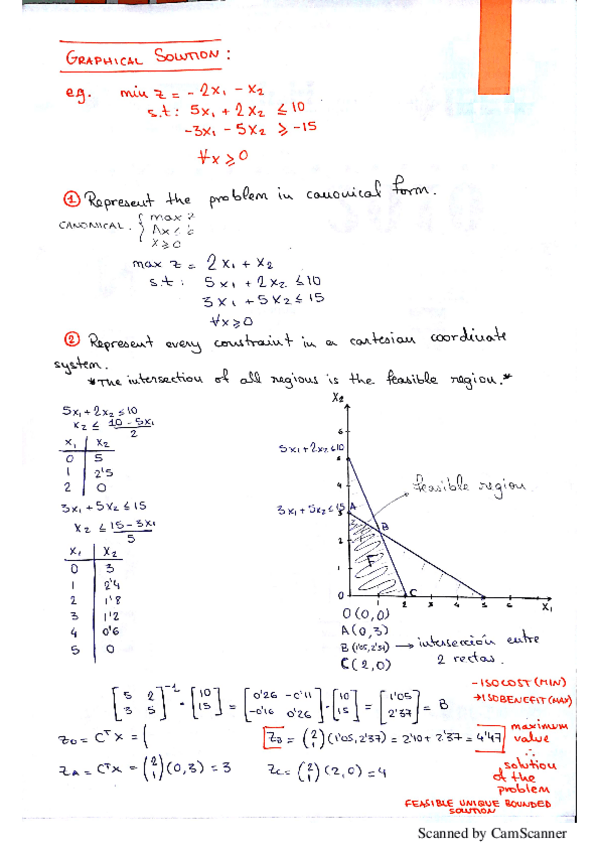 GRAPHICAL SOLUTION:
e.g. min z = - 2x₁ - x₂
s.t: 5x₁ + 2x₂ ≤ 10
-3x₁ - 5x₂ ≥ -15
∀x ≥ 0
① Represent the problem in canonical form.
CANONICAL. { max z
Ax ≤ b
x ≥ 0
max z = 2x₁ + x₂
s.t: 5x₁ + 2x₂ ≤ 10
3x₁ + 5x₂ ≤ 15
∀x ≥ 0
② Represent every constraint in a cartesian coordinate
system.
*The intersection of all regions is the feasible region.*
5x₁ + 2x₂ ≤ 10
x₂ ≤ (10 - 5x₁)/2
x₁ | x₂
0 | 5
1 | 2'5
2 | 0
3x₁ + 5x₂ ≤ 15
x₂ ≤ (15 - 3x₁)/5
x₁ | x₂
0 | 3
1 | 2'4
2 | 1'8
3 | 1'2
4 | 0'6
5 | 0
x₂
6
5x₁ + 2x₂ ≤ 10
5
4
feasible region
3x₁ + 5x₂ ≤ 15
3 A
B
2
F
1
0 C
2 3 4 5 6 x₁
O (0,0)
A (0,3)
B (1'05, 2'37) → intersección entre
2 rectas.
C (2,0)
[5 2; 3 5]⁻¹ · [10; 15] = [0'26 -0'11; -0'16 0'26] · [10; 15] = [1'05; 2'37] = B
- ISOCOST (MIN)
→ ISOBENEFIT (MAX)
z₀ = CᵀX = (
z_B = (2; 1) (1'05, 2'37) = 2'10 + 2'37 = 4'47
maximum
value
∴
solution
of the
problem
z_A = CᵀX = (2; 1) (0,3) = 3
z_C = (2; 1) (2,0) = 4
FEASIBLE UNIQUE BOUNDED
SOLUTION
Scanned by CamScanner